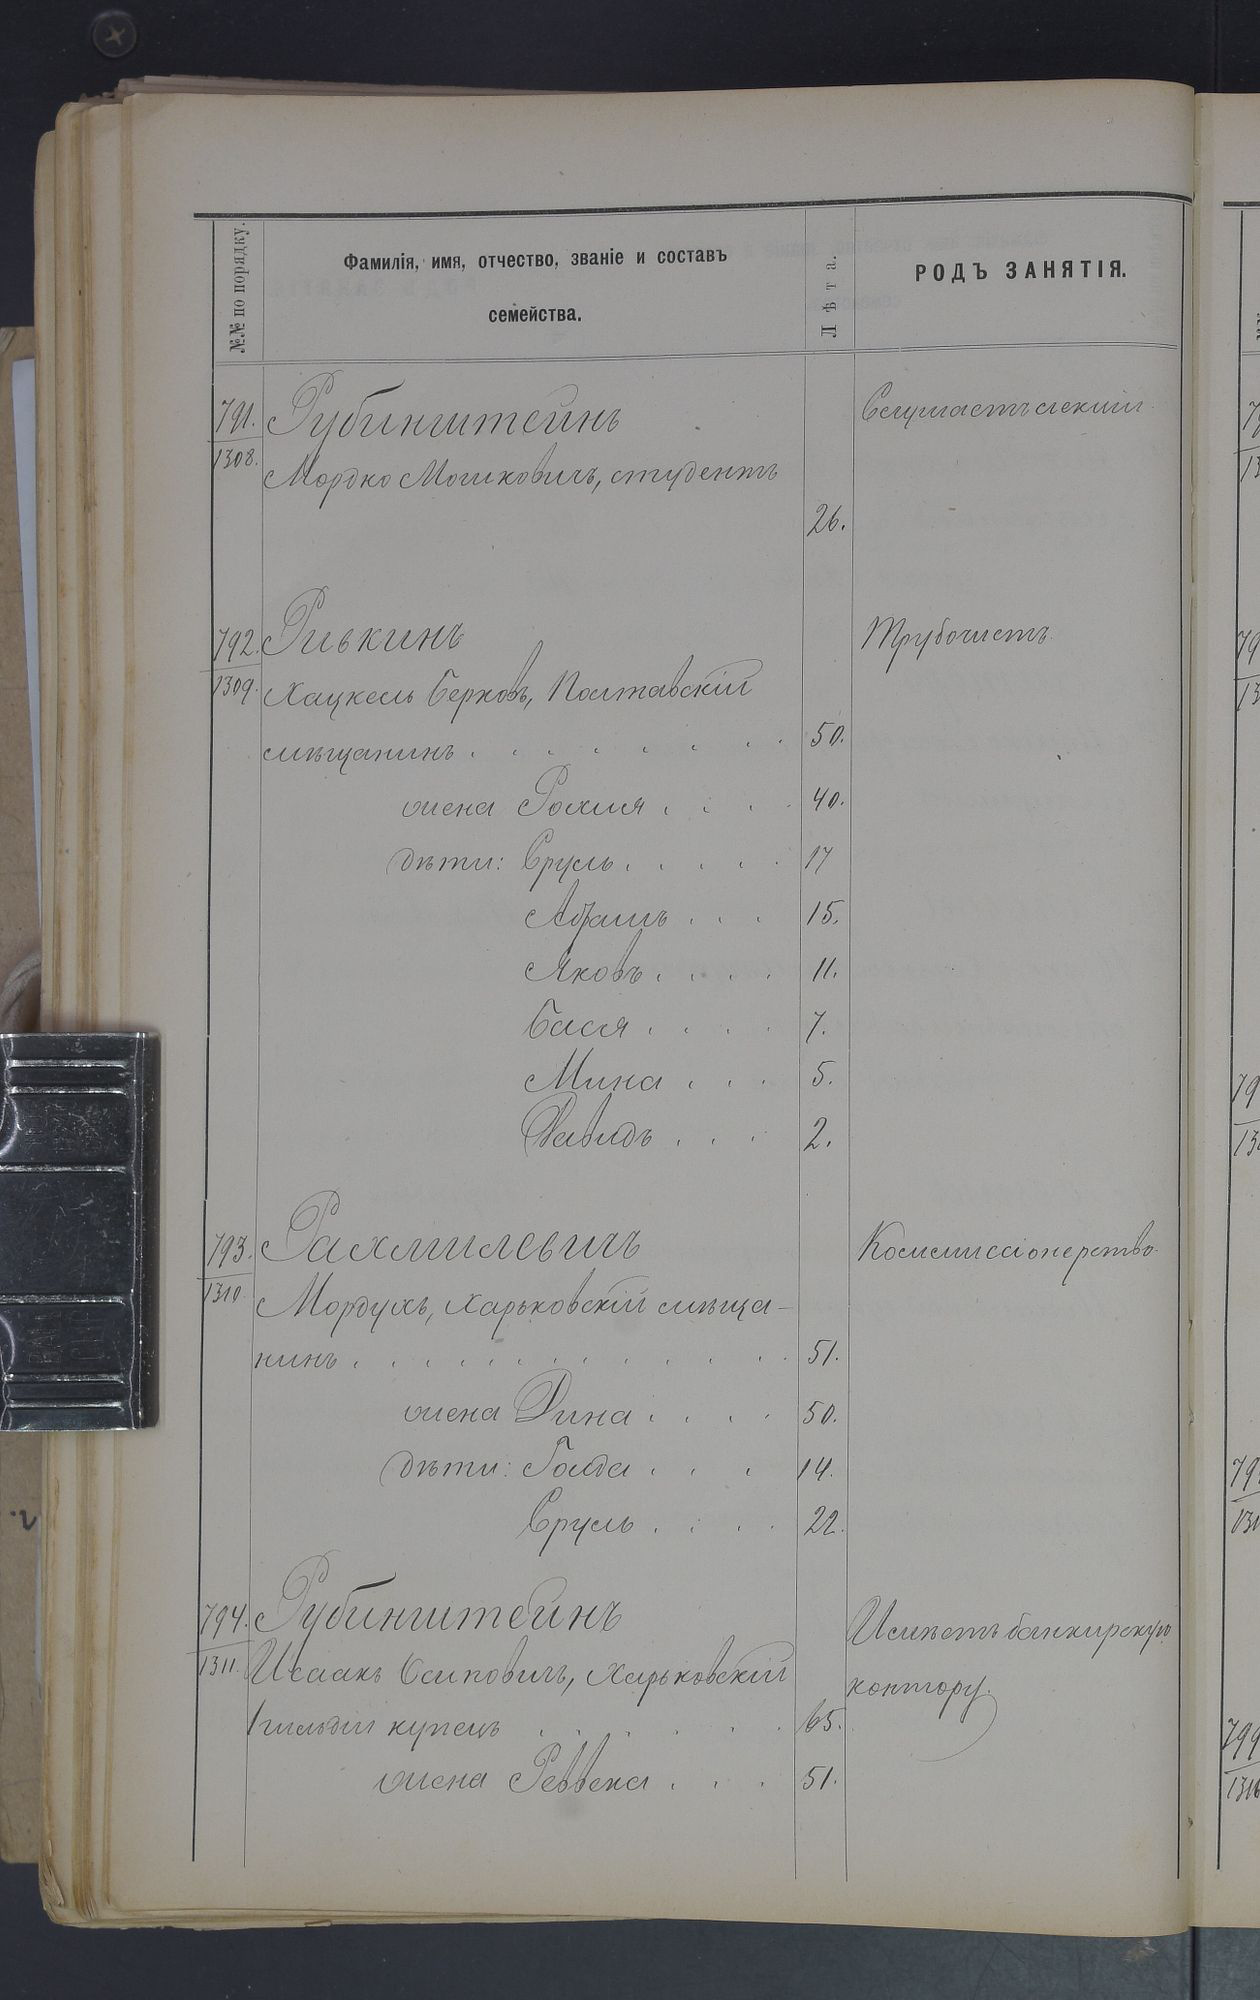 №№ по порядку.
Фамилія, имя, отчество, званіе и составъ
семейства.
Лѣта.
РОДЪ ЗАНЯТІЯ.
791.
1308.
Рубинштейнъ
Мордко Мошковичъ, студентъ
26.
792.
1309.
Ривкинъ
Трубочистъ.
Хацкель Берковъ, Полтавскій
мѣщанинъ . . . . . . . . 50.
жена Рохля . . . . 40.
дѣти: Сруль . . . . . 17
Абрамъ . . . 15.
Яковъ . . . . 11.
Бася . . . . 7.
Мина . . . 5.
Давидъ . . . 2.
793.
1310.
Рахмилевичъ
Коммиссіонерство.
Мордухъ, Харьковскій мѣща-
нинъ . . . . . . . . . . . . 51.
жена Дина . . . . 50.
дѣти: Голда . . . 14.
Сруль . . . . 22.
794.
1311.
Рубинштейнъ
Имѣетъ банкирскую
контору.
Исаакъ Осиповичъ, Харьковскій
1 гильдіи купецъ . . . . . . . 65.
жена Ревекка . . . 51.